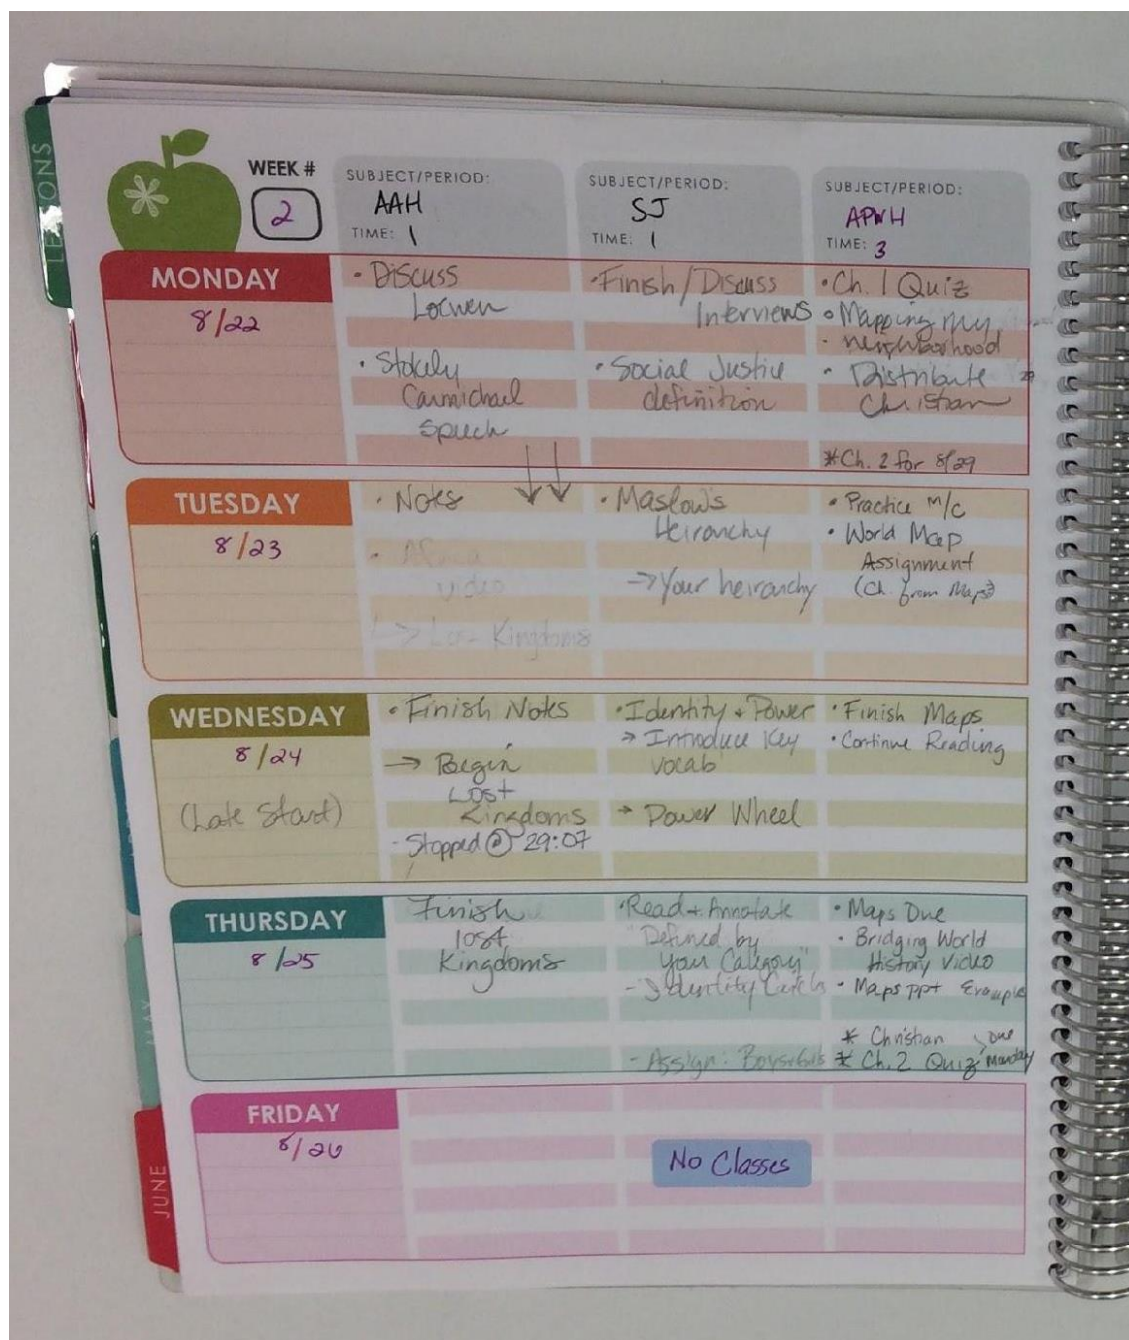 LESSONS
WEEK #
2
SUBJECT/PERIOD:
AAH
TIME: 1
SUBJECT/PERIOD:
SJ
TIME: 1
SUBJECT/PERIOD:
APWH
TIME: 3
MONDAY
8/22
• Discuss
Loewen
• Stokely
Carmichael
Speech
• Finish/Discuss
Interviews
• Social Justice
definition
• Ch. 1 Quiz
• Mapping my
neighborhood
• Distribute
Christian
* Ch. 2 for 8/29
TUESDAY
8/23
• Notes
• Africa
video
→ Lost Kingdoms
• Maslow's
Heirarchy
→ Your heirarchy
• Practice m/c
• World Map
Assignment
(Ch. from Maps)
WEDNESDAY
8/24
(Late Start)
• Finish Notes
→ Begin
Lost
Kingdoms
- Stopped @ 29:07
• Identity + Power
→ Introduce Key
vocab
→ Power Wheel
• Finish Maps
• Continue Reading
THURSDAY
8/25
Finish
lost
Kingdoms
• Read + Annotate
"Defined by
Your Category"
- Identity Cards
- Assign: Boys+Girls
• Maps Due
• Bridging World
History Video
• Maps ppt Example
* Christian
* Ch. 2 Quiz
Due
Monday
FRIDAY
8/26
No Classes
MAY
JUNE